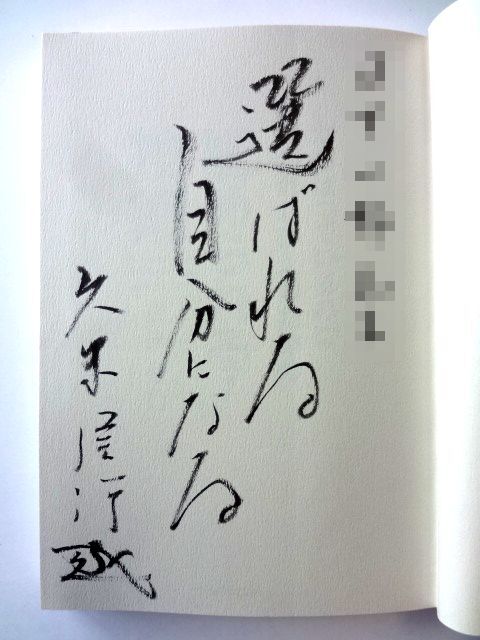 選ばれる
自分になる
久米信行